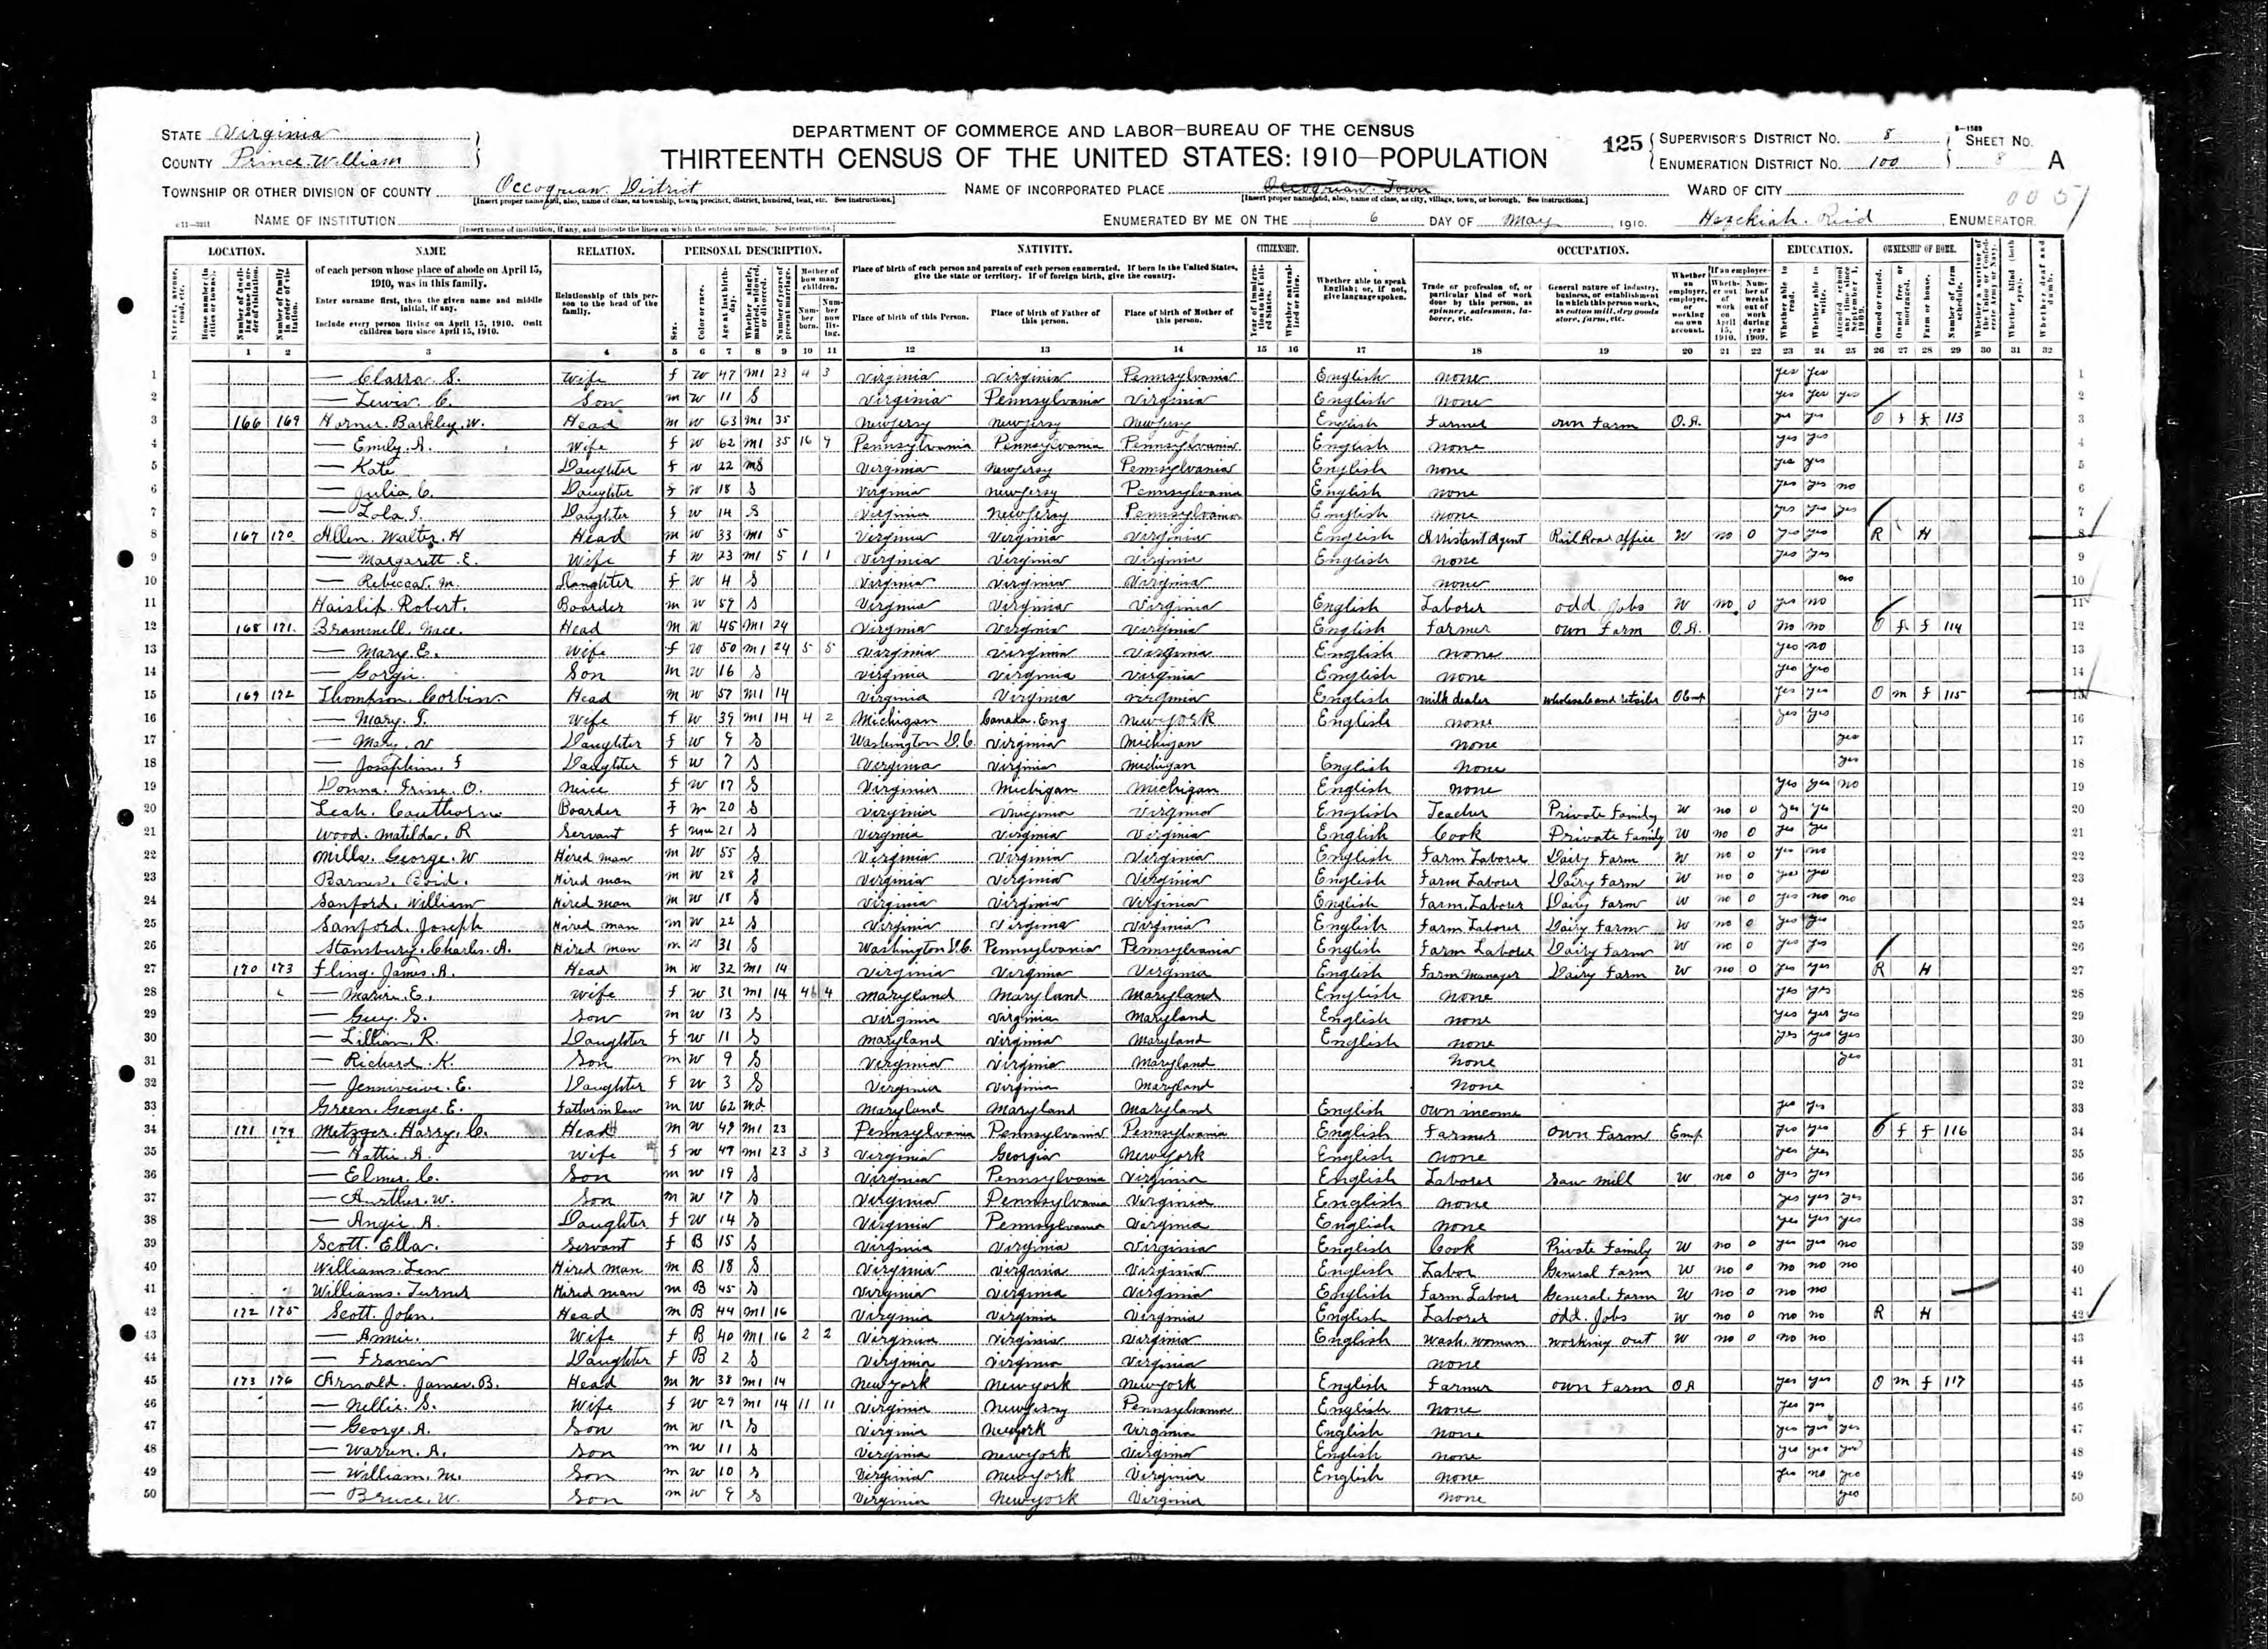 STATE Virginia
COUNTY Prince William
DEPARTMENT OF COMMERCE AND LABOR—BUREAU OF THE CENSUS
THIRTEENTH CENSUS OF THE UNITED STATES: 1910—POPULATION
125
SUPERVISOR'S DISTRICT No. 8
ENUMERATION DISTRICT No. 100
SHEET No. 8 A
TOWNSHIP OR OTHER DIVISION OF COUNTY Occoquan District
NAME OF INCORPORATED PLACE Occoquan Town
WARD OF CITY
NAME OF INSTITUTION
ENUMERATED BY ME ON THE 6 DAY OF May, 1910. Hezekiah Reid, ENUMERATOR.
LOCATION. NAME RELATION. PERSONAL DESCRIPTION. NATIVITY. CITIZENSHIP. OCCUPATION. EDUCATION. OWNERSHIP OF HOME.
of each person whose place of abode on April 15, 1910, was in this family.
Enter surname first, then the given name and middle initial, if any.
Include every person living on April 15, 1910. Omit children born since April 15, 1910.
Relationship of this person to the head of the family.
Place of birth of each person and parents of each person enumerated. If born in the United States, give the state or territory. If of foreign birth, give the country.
Place of birth of this Person. Place of birth of Father of this person. Place of birth of Mother of this person.
Whether able to speak English; or, if not, give language spoken.
1 2 3 4 5 6 7 8 9 10 11 12 13 14 15 16 17 18 19 20 21 22 23 24 25 26 27 28 29 30 31 32
1 — Clarra. S. Wife f W 47 M1 23 4 3 Virginia Virginia Pennsylvania English none yes yes
2 — Lewis. C. Son m W 11 S Virginia Pennsylvania Virginia English none yes yes yes
3 166 169 Horner. Barkley. W. Head m W 63 M1 35 New Jersy New Jersy New Jersy English Farmer own Farm O.A. yes yes O f f 113
4 — Emily. A. Wife f W 62 M1 35 16 9 Pennsylvania Pennsylvania Pennsylvania English none yes yes
5 — Kate Daughter f W 22 S Virginia New Jersy Pennsylvania English none yes yes
6 — Julia. C. Daughter f W 18 S Virginia New Jersy Pennsylvania English none yes yes no
7 — Lola. I. Daughter f W 14 S Virginia New Jersy Pennsylvania English none yes yes yes
8 167 170 Allen. Walter. H Head m W 33 M1 5 Virginia Virginia Virginia English Assistent Agent Rail Road office W no 0 yes yes R H
9 — Margarett. E. Wife f W 23 M1 5 1 1 Virginia Virginia Virginia English none yes yes
10 — Rebecca. M. Daughter f W 4 S Virginia Virginia Virginia none no
11 Haislip. Robert. Boarder m W 59 S Virginia Virginia Virginia English Laborer odd Jobs W no 0 yes no
12 168 171 Brammell. Mace. Head m W 45 M1 24 Virginia Virginia Virginia English Farmer own Farm O.A. no no O f f 114
13 — Mary. E. Wife f W 50 M1 24 5 5 Virginia Virginia Virginia English none yes no
14 — Gorgie. Son m W 16 S Virginia Virginia Virginia English none yes yes
15 169 172 Thompson. Corbin. Head m W 57 M1 14 Virginia Virginia Virginia English milk dealer wholesale and retailer yes yes O m f 115
16 — Mary. I. Wife f W 39 M1 14 4 2 Michigan Canada. Eng New York English none yes yes
17 — Mary. V Daughter f W 9 S Washington D.C. Virginia Michigan none yes
18 — Josephine. F Daughter f W 7 S Virginia Virginia Michigan English none yes
19 Donna. Irine. O. Niece f W 17 S Virginia Michigan Michigan English none yes yes no
20 Leah. Cauthorne Boarder f W 20 S Virginia Virginia Virginia English Teacher Private Family W no 0 yes yes
21 Wood. Matilda. R Servant f Mu 21 S Virginia Virginia Virginia English Cook Private Family W no 0 yes yes
22 Mills. George. W Hired man m W 55 S Virginia Virginia Virginia English Farm Laborer Dairy Farm W no 0 yes no
23 Barnes. Boid. Hired man m W 28 S Virginia Virginia Virginia English Farm Laborer Dairy Farm W no 0 yes yes
24 Sanford. William Hired man m W 18 S Virginia Virginia Virginia English Farm Laborer Dairy Farm W no 0 yes no no
25 Sanford. Joseph Hired man m W 22 S Virginia Virginia Virginia English Farm Laborer Dairy Farm W no 0 yes yes
26 Stansbury. Charles. A. Hired man m W 31 S Washington D.C. Pennsylvania Pennsylvania English Farm Laborer Dairy Farm W no 0 yes yes
27 170 173 Fling. James. A. Head m W 32 M1 14 Virginia Virginia Virginia English Farm Manager Dairy Farm W no 0 yes yes R H
28 — Marie. E. Wife f W 31 M1 14 4 4 Maryland Maryland Maryland English none yes yes
29 — Guy. S. Son m W 13 S Virginia Virginia Maryland English none yes yes yes
30 — Lillian. R. Daughter f W 11 S Maryland Virginia Maryland English none yes yes yes
31 — Richard. K. Son m W 9 S Virginia Virginia Maryland none yes
32 — Jenniveive. E. Daughter f W 3 S Virginia Virginia Maryland none
33 Green. George. E. Father in law m W 62 Wd. Maryland Maryland Maryland English own income yes yes
34 171 174 Metzger. Harry. C. Head m W 49 M1 23 Pennsylvania Pennsylvania Pennsylvania English Farmer own Farm Emp yes yes O f f 116
35 — Hattie. A. Wife f W 47 M1 23 3 3 Virginia Georgia New York English none yes yes
36 — Elmer. C. Son m W 19 S Virginia Pennsylvania Virginia English Laborer Saw mill W no 0 yes yes
37 — Aurther. W. Son m W 17 S Virginia Pennsylvania Virginia English none yes yes yes
38 — Angie. A. Daughter f W 14 S Virginia Pennsylvania Virginia English none yes yes yes
39 Scott. Ella. Servant f B 15 S Virginia Virginia Virginia English Cook Private Family W no 0 yes yes no
40 Williams. Len Hired man m B 18 S Virginia Virginia Virginia English Labor General Farm W no 0 no no no
41 Williams. Turner Hired man m B 45 S Virginia Virginia Virginia English Farm Labour General Farm W no 0 no no
42 172 175 Scott. John. Head m B 44 M1 16 Virginia Virginia Virginia English Laborer odd. Jobs W no 0 no no R H
43 — Annie. Wife f B 40 M1 16 2 2 Virginia Virginia Virginia English Wash. woman working out W no 0 no no
44 — Francis Daughter f B 2 S Virginia Virginia Virginia none
45 173 176 Arnold. James. B. Head m W 38 M1 14 New York New York New York English Farmer own Farm OA yes yes O m f 117
46 — Nellie. S. Wife f W 29 M1 14 11 11 Virginia New Jersy Pennsylvania English none yes yes
47 — George. A. Son m W 12 S Virginia New York Virginia English none yes yes yes
48 — Warren. A. Son m W 11 S Virginia New York Virginia English none yes yes yes
49 — William. M. Son m W 10 S Virginia New York Virginia English none yes no yes
50 — Bruce. W. Son m W 9 S Virginia New York Virginia none yes